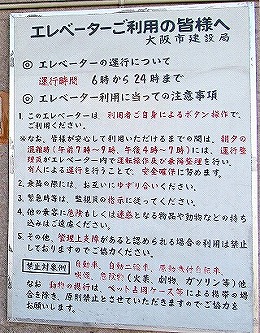 エレベーターご利用の皆様へ
大阪市建設局
◎ エレベーターの運行について
運行時間 6時から24時まで
◎ エレベーター利用に当っての注意事項
1. このエレベーターは、利用者ご自身によるボタン操作で、
ご利用ください。
※なお、皆様が安心して利用いただけるまでの間は、朝夕の
混雑時（午前7時～9時、午後4時～9時）には、運行整
理員がエレベーター内で運転操作及び乗降整理を行い、
有人による運行を行うことで、安全確保に努めます。
2. 乗降の際には、お互いにゆずり合いください。
3. 緊急時等は、監視員の指示に従ってください。
4. 他の乗客に危険もしくは迷惑となる物品や動物などの持ち
込みはご遠慮ください。
5. その他、管理上支障があると認められる場合の利用は禁止
しておりますのでご協力ください。
禁止対象例 自動車、自動二輪車、原動機付自転車、
喫煙、危険物（火薬、劇物、ガソリン等）
なお、動物の携行は、ペット専用ケース等による携帯の場
合を除き、原則禁止とさせていただきますのでご協力を
お願いします。